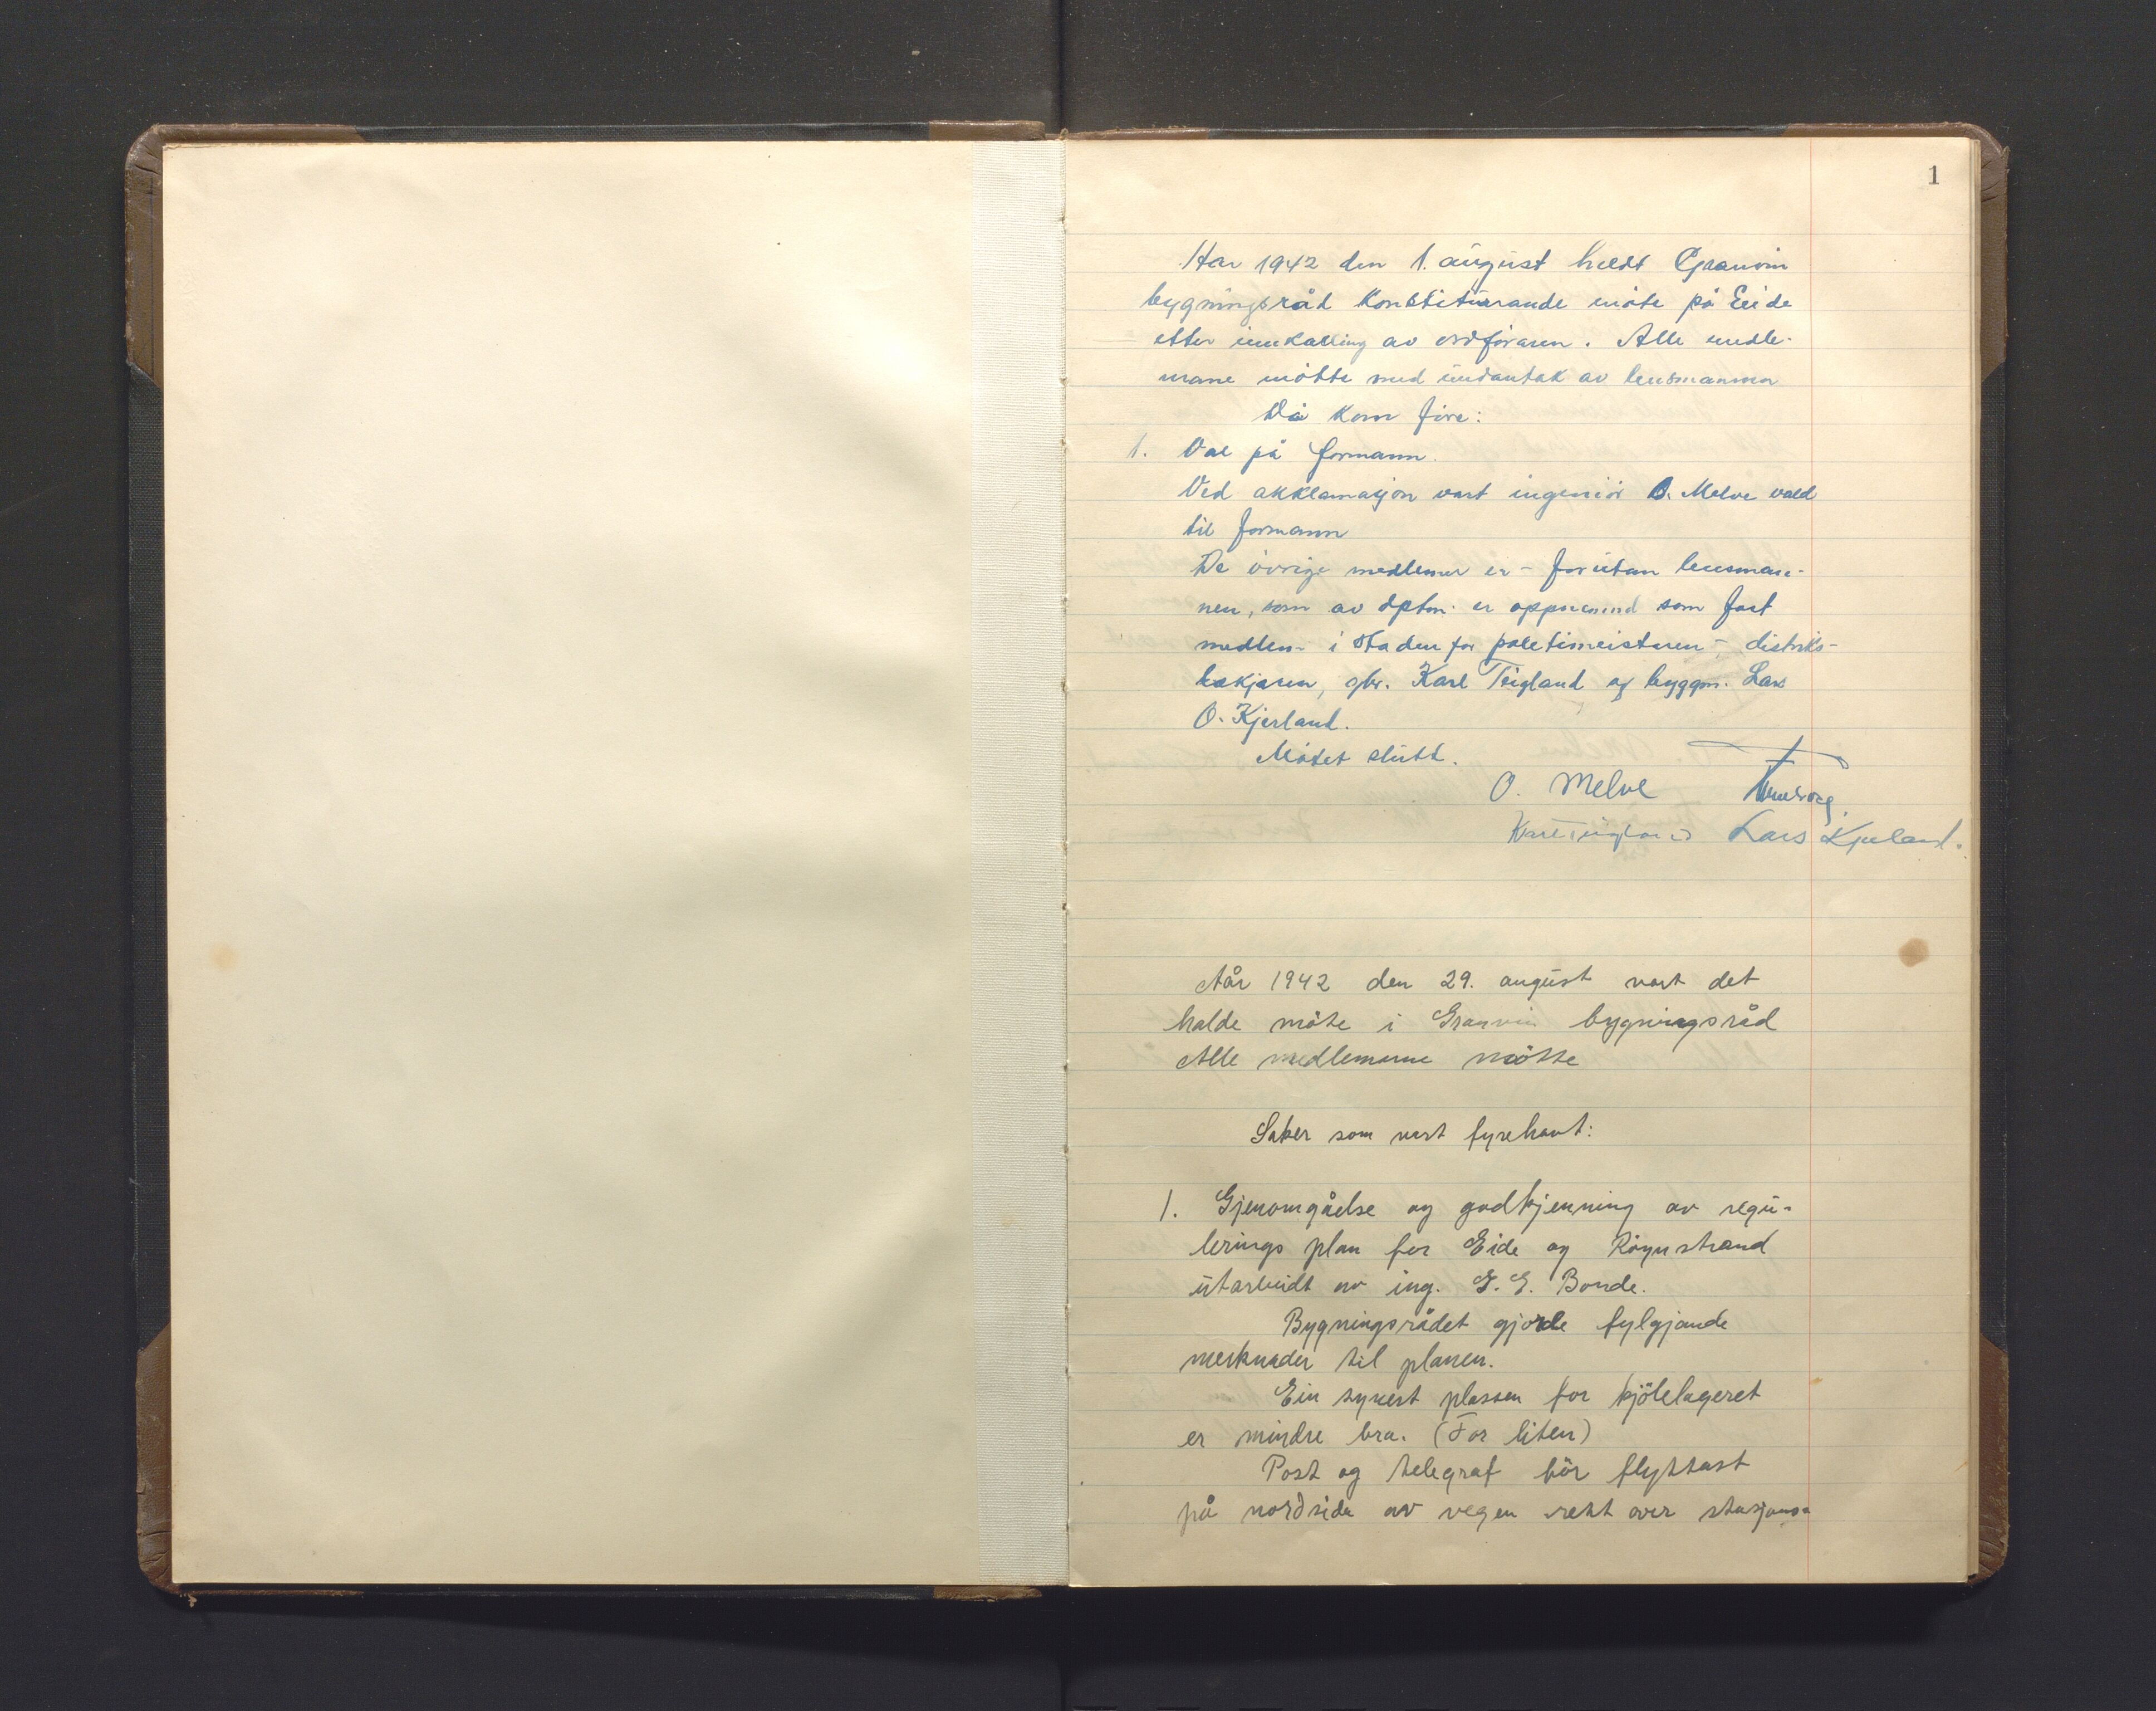 1
Har 1942 den 1. august heldt Granvin
bygningsråd konstituerande möte på Eide
etter innkalling av ordföraren. Alle medle-
mane mötte med undantak av lensmannen
Då kom före:
1. Val på formann.
Ved akklamasjon vart ingeniör O. Melve vald
til formann
De övrige medlemer er – forutan lensman-
nen, som av dptm. er oppnemnd som fast
medlem i staden for politimeisteren –, distrikts-
lækjaren, gbr. Karl Teigland og byggm. Lars
O. Kjerland.
Mötet slutt.
O. Melve
Karl Teigland Lars Kjerland.
År 1942 den 29. august vart det
halde möte i Granvin bygningsråd
Alle medlemane mötte
Saker som vart fyrehavt:
1. Gjenomgåelse og godkjenning av regu-
lerings plan for Eide og Röynstrand
utarbeidt av ing. G. E. Bonde.
Bygningsrådet gjorde fylgjande
merknader til planen.
Ein synest plassen for kjölelageret
er mindre bra. (For liten)
Post og telegraf bör flyttast
på nordsida av vegen rett over stasjons-